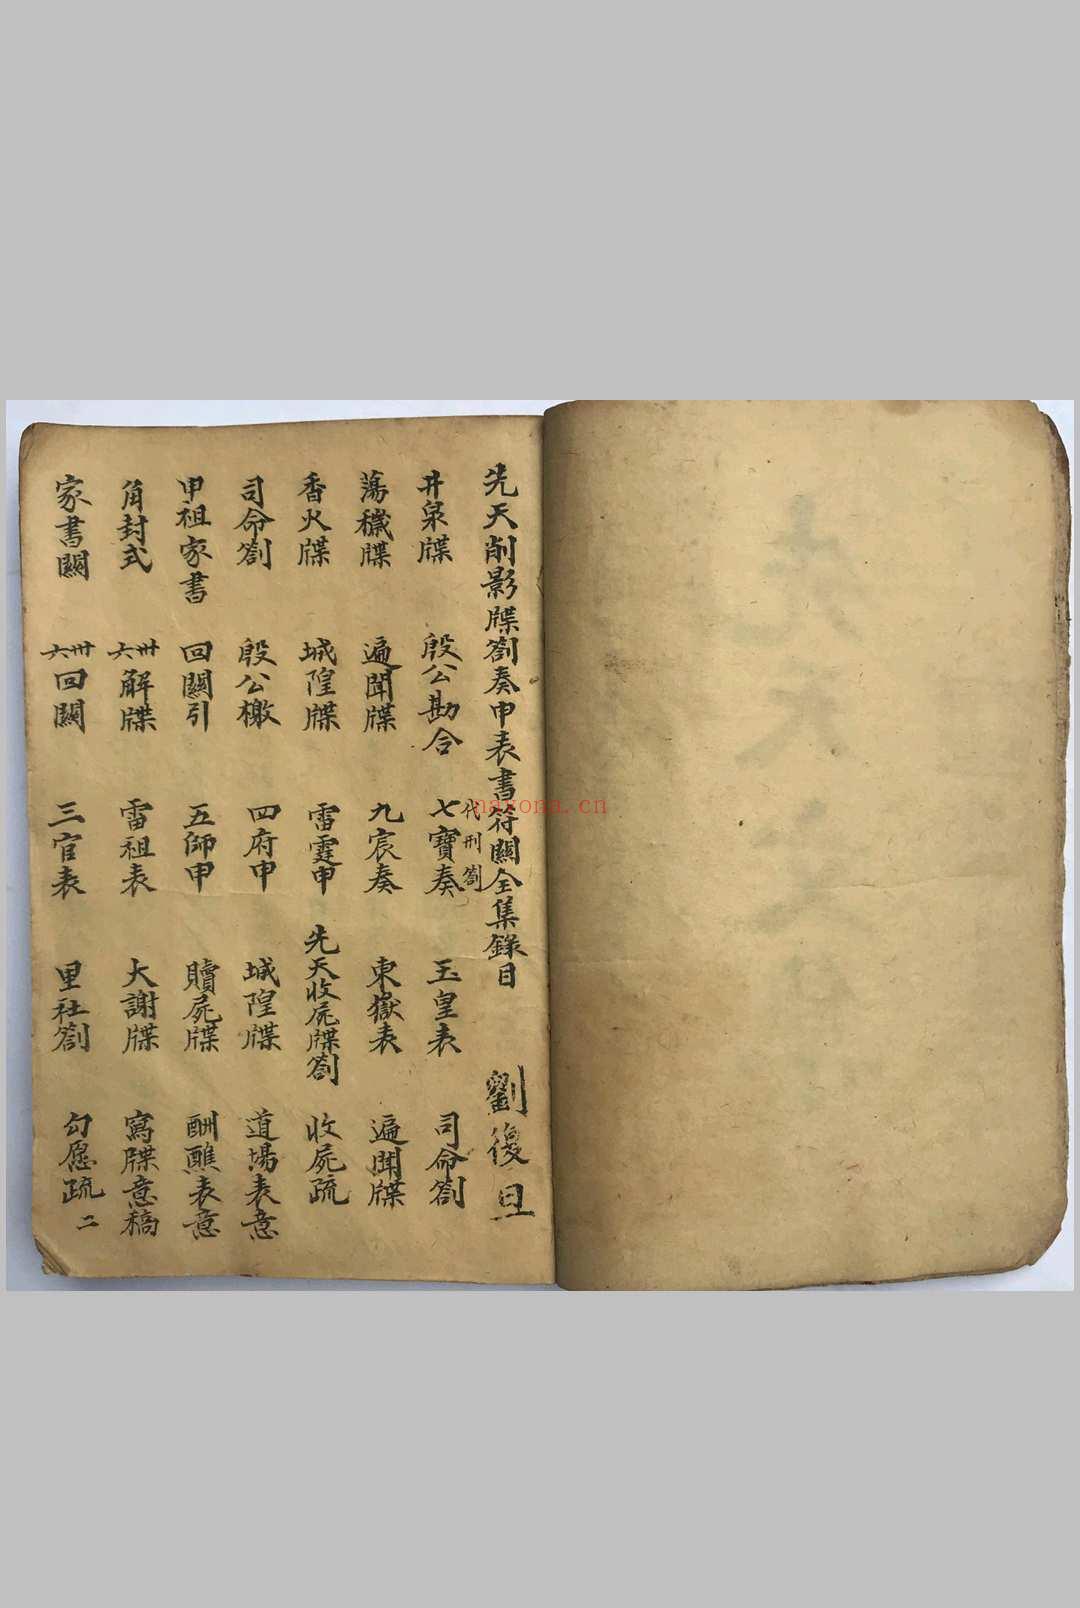 先天削影牒劄奏申表書符關全集錄目 劉復旦
代刑劄
井泉牒 殷公勘合 七寶奏 玉皇表 司命劄
蕩穢牒 遍聞牒 九宸奏 東嶽表 遍聞牒
香火牒 城隍牒 雷霆申 先天收屍牒劄 收屍疏
司命劄 殷公檄 四府申 城隍牒 道場表意
申祖家書 回關引 五師申 贖屍牒 酬醮表意
角封式 卅六解牒 雷祖表 大謝牒 寫牒意稿
家書關 卅六回關 三官表 里社劄 勾愿疏 二
nayona.cn